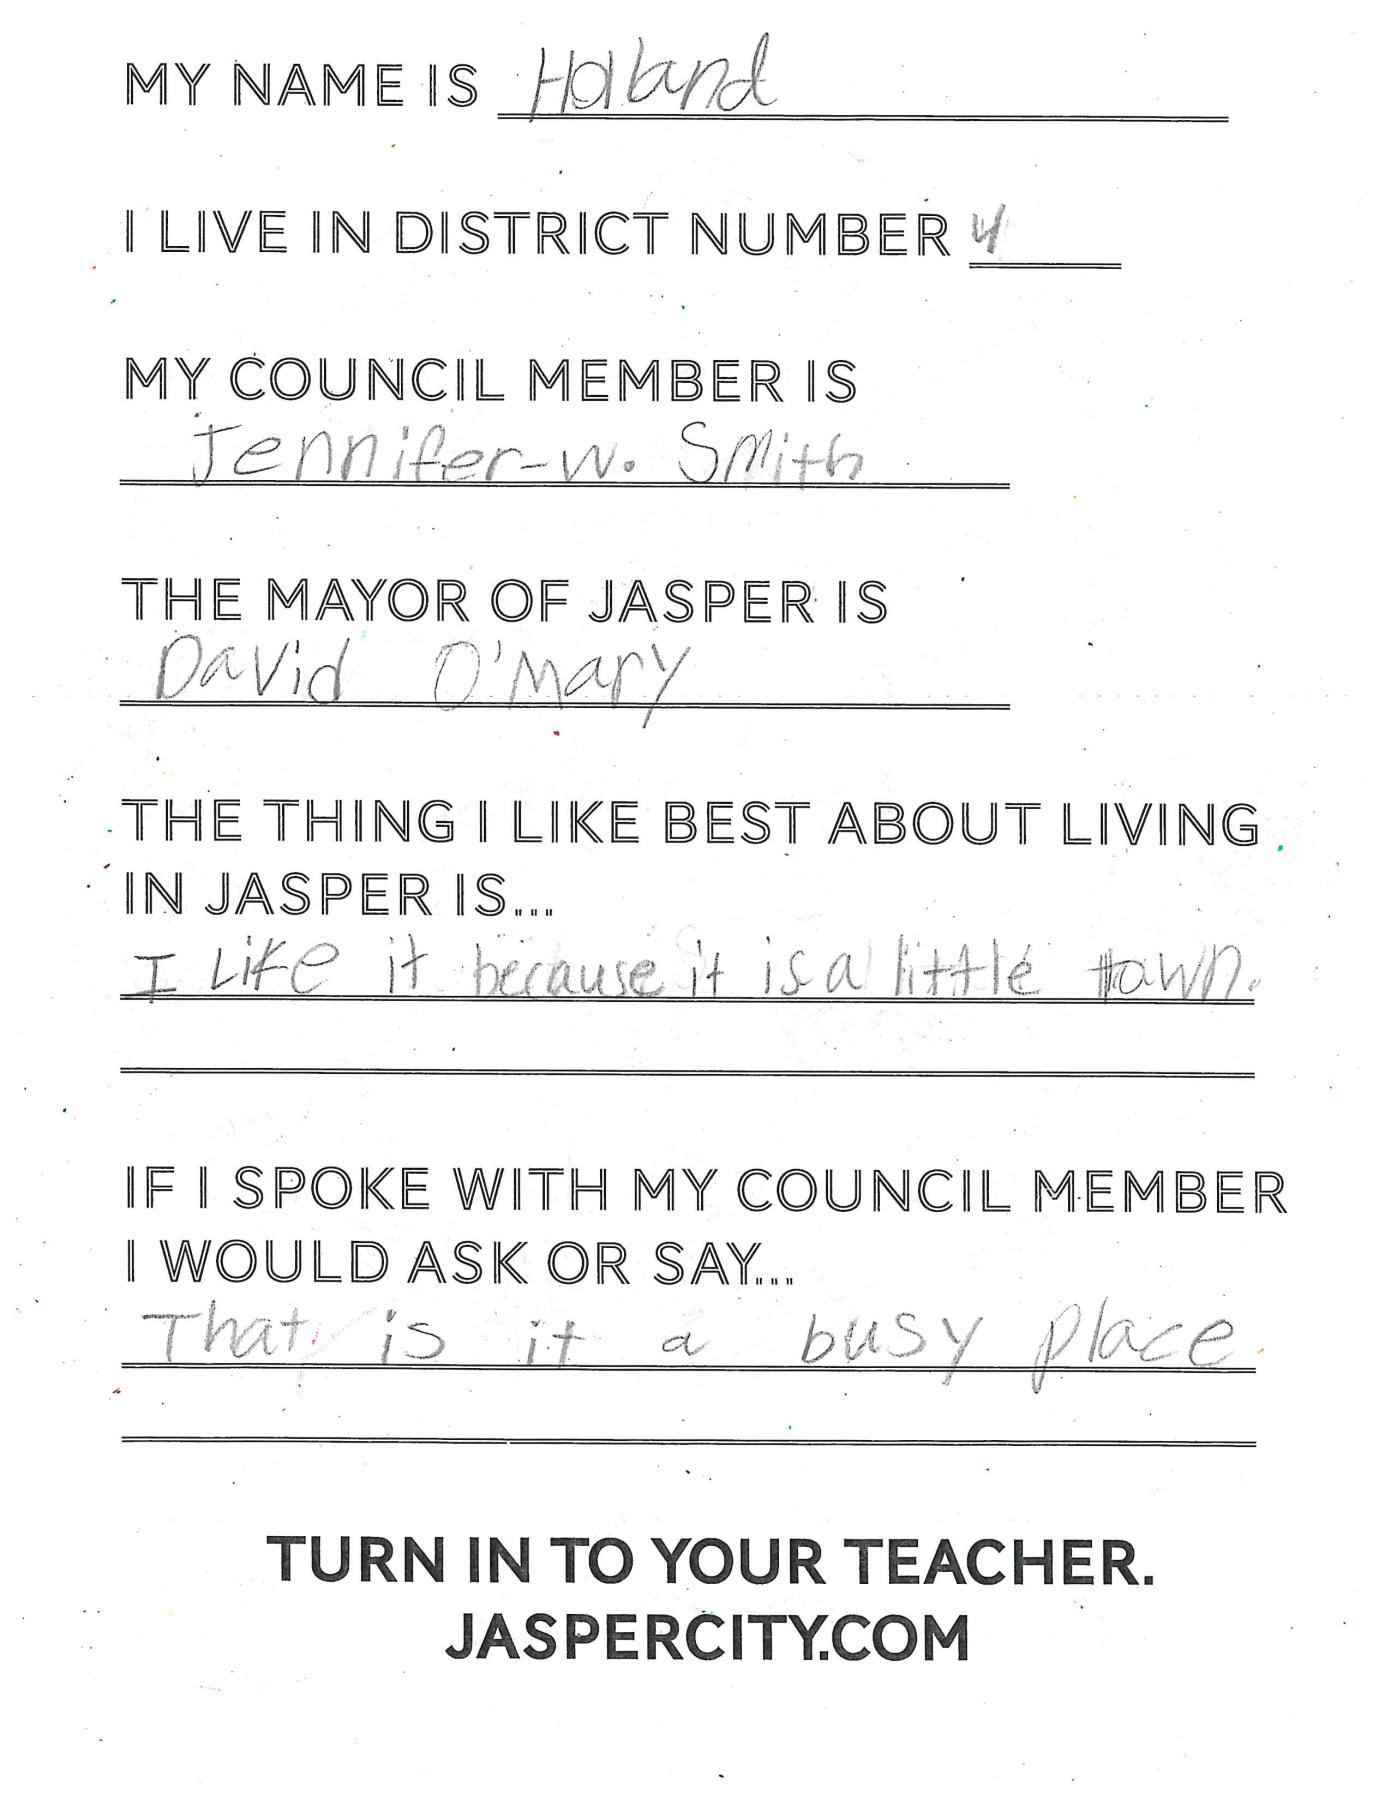 MY NAME IS Holland
I LIVE IN DISTRICT NUMBER 4
MY COUNCIL MEMBER IS
Jennifer-W. Smith
THE MAYOR OF JASPER IS
David O'Mary
THE THING I LIKE BEST ABOUT LIVING
IN JASPER IS...
I Like it because it is a little tawn.
IF I SPOKE WITH MY COUNCIL MEMBER
I WOULD ASK OR SAY...
That is it a busy place
TURN IN TO YOUR TEACHER.
JASPERCITY.COM